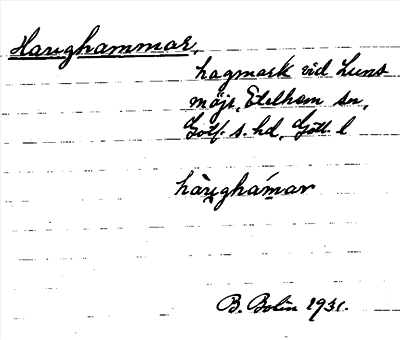 Harughammar,
hagmark vid Luns
møjr, Etelhem sn,
Gotl. s. hd, Gotl. l
hàrughámar
B. Bolin 1931.